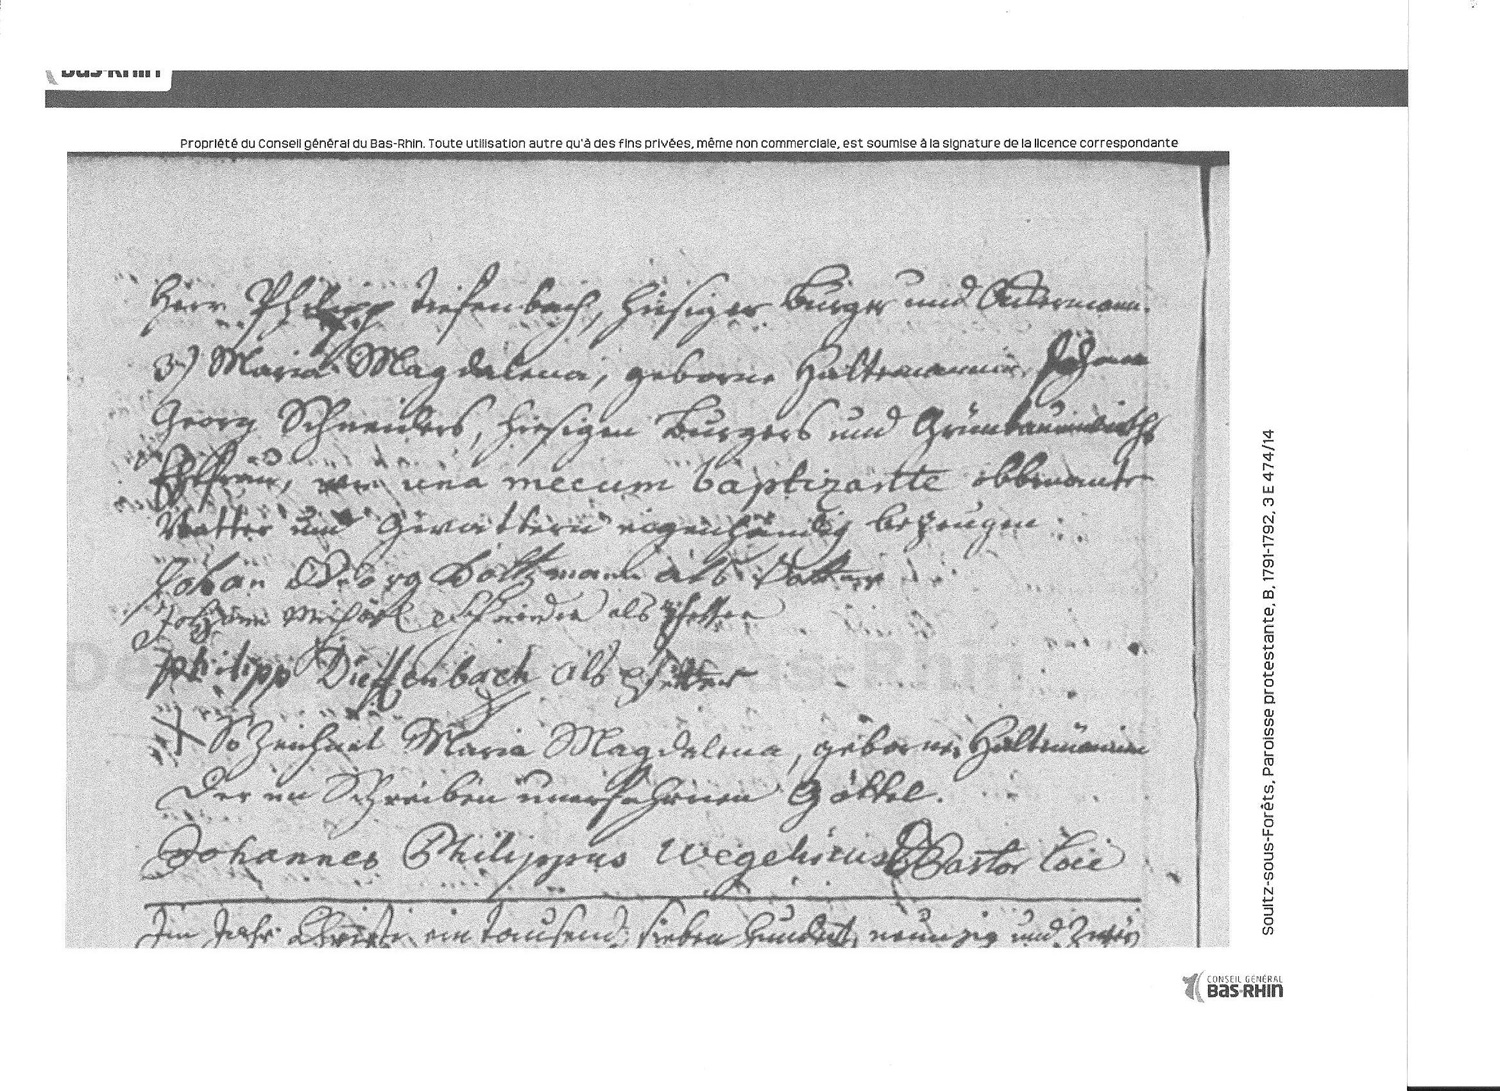 Bas-Rhin
Propriété du Conseil général du Bas-Rhin. Toute utilisation autre qu'à des fins privées, même non commerciale, est soumise à la signature de la licence correspondante
Herr Philipp Tiefenbach, hiesiger Burger und Ackermann.
3) Maria Magdalena, geborne Haltemännin, Johann
Georg Schneiders, hiesigen Burgers und Grünbaumwirths
Ehefrau, una mecum baptizante obbenante
Vatter und Gevattern eigenhändig bezeugen:
Johan Georg Boltzmann als Vatter
Johann Michael Schneider als Pfetter
Philipp Dieffenbach als Pfetter
X So Zeichnet Maria Magdalena, geborne Haltemännin
Der im Schreiben unerfahrnen Göttel.
Johannes Philippus Wegelinus Pastor loci
Im Jahr Christi ein tausend sieben hundert neunzig und zwei
Soultz-sous-Forêts, Paroisse protestante, B, 1791-1792, 3 E 474/14
CONSEIL GÉNÉRAL
Bas-Rhin